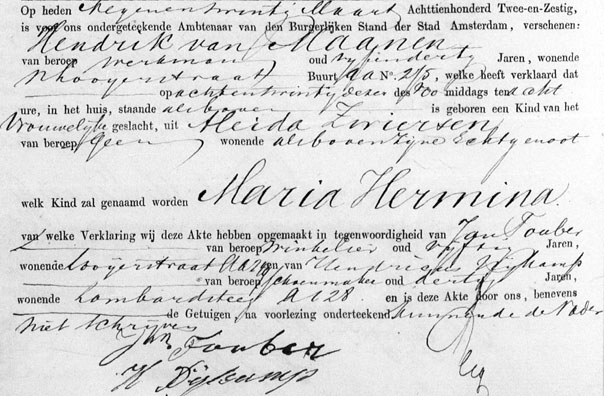 Op heden Negenentwintig Maart Achttienhonderd Twee-en-Zestig,
is voor ons ondergeteekende Ambtenaar van den Burgerlijken Stand der Stad Amsterdam, verschenen:
Hendrik van Maanen
van beroep Werkman oud vijfendertig Jaren, wonende
Buurt No. 215, welke heeft verklaard dat
op achtentwintig dezer des middags ten acht
ure, in het huis, staande alsboven is geboren een Kind van het
Vrouwelijke geslacht, uit Aleida Zwiersen
van beroep Geen wonende alsboven zijne Echtgenoot
welk Kind zal genaamd worden Maria Hermina.
van welke Verklaring wij deze Akte hebben opgemaakt in tegenwoordigheid van Jan Fouber
van beroep Winkelier oud vijftig Jaren,
wonende Looijerstraat en van Hendrikus Dijkamp
van beroep Schoenmaker oud dertig Jaren,
wonende Lombardsteeg A 128 en is deze Akte door ons, benevens
de Getuigen, na voorlezing onderteekend kunnende de Vader
niet schrijven
Jan Fouber
H Dijkamp